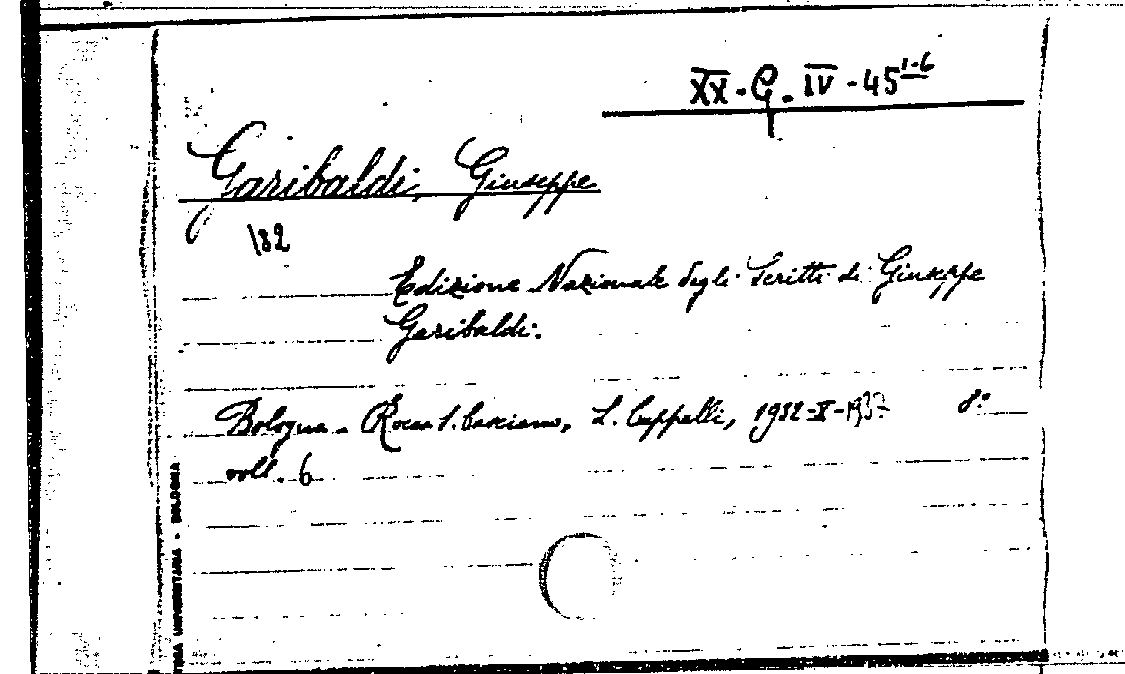 XX - G. IV - 45 1-6
Garibaldi, Giuseppe
182
Edizione Nazionale degli Scritti di Giuseppe
Garibaldi.
Bologna - Rocca S. Casciano, L. Cappelli, 1932-X-1937 8°
voll. 6
UNIVERSITARIA - BOLOGNA